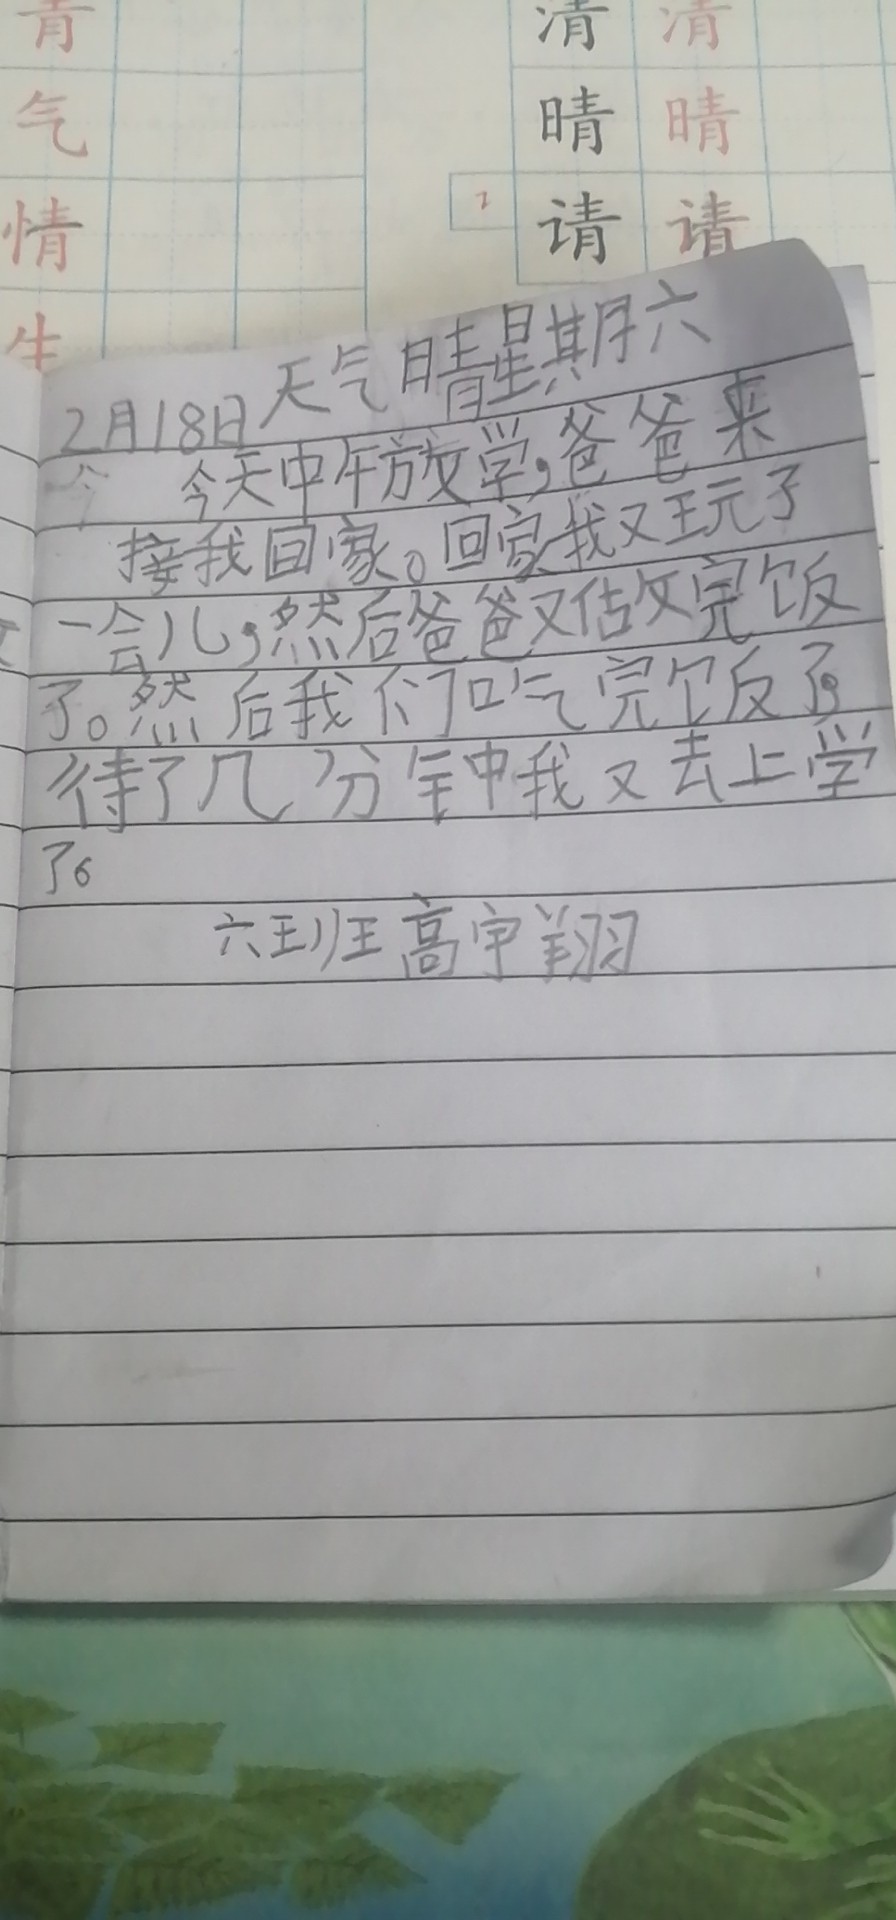 青
气
情
生
清 清
晴 晴
请 请
2月18日天气晴星期六
今 今天中午放学,爸爸来
接我回家。回家我又玩了
一会儿,然后爸爸又估攵完饭
了。然后我们吃完饭了,
待了几分钟我又去上学
了。
六班班高宇翔